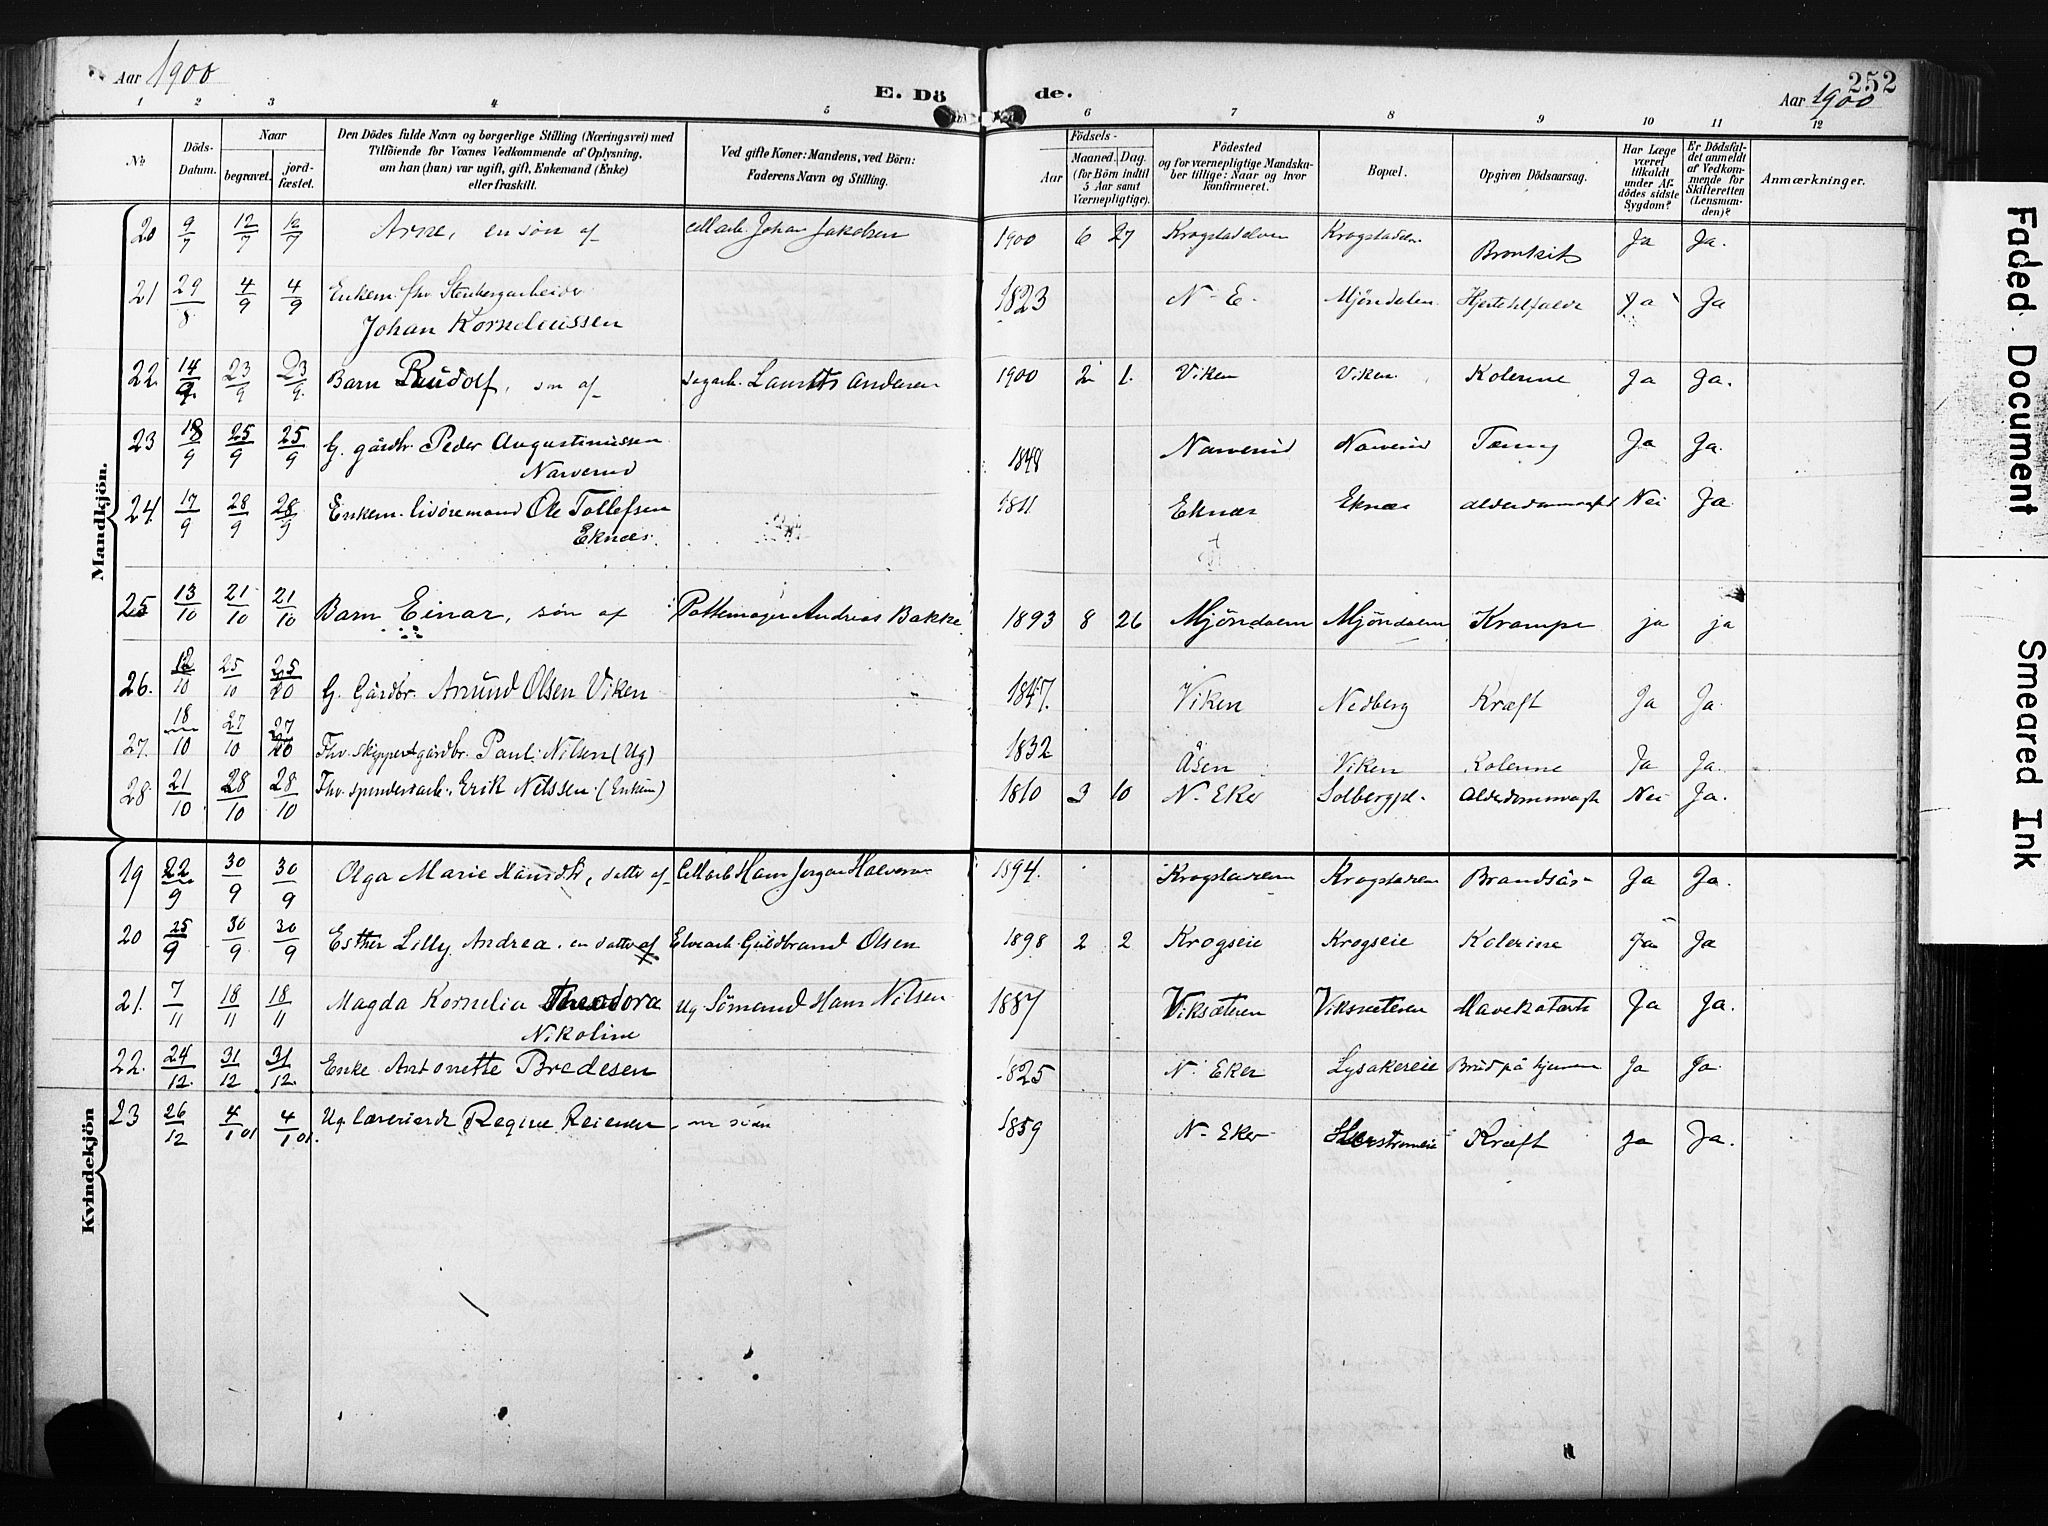 Aar 1900
E. Dö de.
252
Aar 1900
1 2 3 4 5 6 7 8 9 10 11 12
No
Döds-Datum.
Naar
begravet.
jord-fæstet.
Den Dödes fulde Navn og borgerlige Stilling (Næringsvei) med
Tilföiende for Voxnes Vedkommende af Oplysning,
om han (hun) var ugift, gift, Enkemand (Enke)
eller fraskilt.
Ved gifte Koner: Mandens, ved Börn:
Faderens Navn og Stilling.
Födsels-
Aar
Maaned. Dag.
(for Börn indtil
5 Aar samt
Værnepligtige).
Födested
og for værnepligtige Mandska-
ber tillige: Naar og hvor
konfirmeret.
Bopæl.
Opgiven Dödsaarsag.
Har Læge
været
tilkaldt
under Af-
dödes sidste
Sygdom?
Er Dödsfal-
det anmeldt
af Vedkom-
mende for
Skifteretten
(Lensman-
den)?
Anmærkninger.
Mandkjön.
20 9/7 12/7 12/7 Arne, en søn af Johan Jakobsen 1900 6 27 Krogstadelven Bronkit Ja Ja.
21 29/8 4/9 4/9 Enkem. fhv. Stenbergarbeider
Johan Korneliussen 1823 N. E. Mjøndalen Ja Ja
22. 14/9 23/9 23/9 Barn Rudolf, søn af Laurits Andersen 1900 2 1. Viken Viken Kolerine Ja Ja.
23 18/9 25/9 25/9 G. gårdbr. Peder Augustinussen
Narverud 1848 Narverud Narverud Ja Ja.
24. 17/9 28/9 28/9 Enkem. Ole Tollefsen
Eknæs. 1811 Eknæs Eknæs Nei Ja
25 13/10 21/10 21/10 Barn Einar, søn af Pottemager Andreas Bakke 1893 8 26 Mjöndalen Mjöndalen Krampe ja ja
26. 12/10 25/10 25/10 G. Gårdbr. Amund Olsen Viken 1847. Viken Nedberg Kræft Ja Ja.
27. 18/10 27/10 27/10 Fhv. skipper & gårdbr. Paul Nilsen (Ug) 1832 Åsen Viken Kolerine Ja Ja.
28. 21/10 28/10 28/10 Fhv. Erik Nilssen (Enkem) 1810 3 10 N. Eker Solbergpl. Nei Ja.
Kvindekjön
19 22/9 30/9 30/9 Olga Marie Hansdtr, datter af Hans Jørgen Halvorsen 1894. Ja Ja.
20 25/9 30/9 30/9 Esther Lilly Andrea, en datter af Elvearb. Guldbrand Olsen 1898 2 2 Krogseie Krogseie Kolerine Ja Ja
21. 7/11 18/11 18/11 Magda Kornelia Theodora
Nikoline Ug Sömand Hans Nilsen 1887 Viksæteren Viksæteren Mavekatarh Ja Ja.
22. 24/12 31/12 31/12 Enke Antonette Bredesen 1825 N. Eker Lysakereie Ja Ja.
23 26/12 4/1 01 4/1 01. Ug. lærerinde Regine 1859 N. Eker Kræft Ja Ja.
Faded Document
Smeared Ink